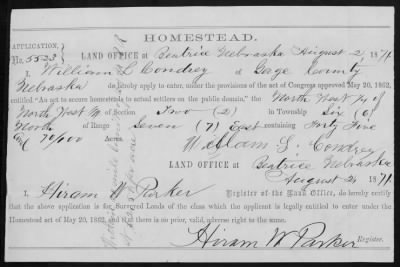 HOMESTEAD.
APPLICATION,
No. 5523
LAND OFFICE at Beatrice Nebraska August 2, 1871.
I, William L Condrey of Gage County
Nebraska do hereby apply to enter, under the provisions of the act of Congress approved May 20, 1862,
entitled "An act to secure homesteads to actual settlers on the public domain," the North West ¼ of
North West ¼ of Section Two (2) in Township Six (6)
North of Range Seven (7) East containing Forty Five
70/100 Acres
William L. Condrey
LAND OFFICE at Beatrice Nebraska
August 2, 1871
I, Hiram W Parker Register of the Land Office, do hereby certify
that the above application is for Surveyed Lands of the class which the applicant is legally entitled to enter under the
Homestead act of May 20, 1862, and that there is no prior, valid, adverse right to the same.
Hiram W Parker
Register.